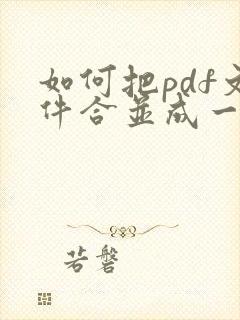 如何把pdf文
件合并成一
若磐